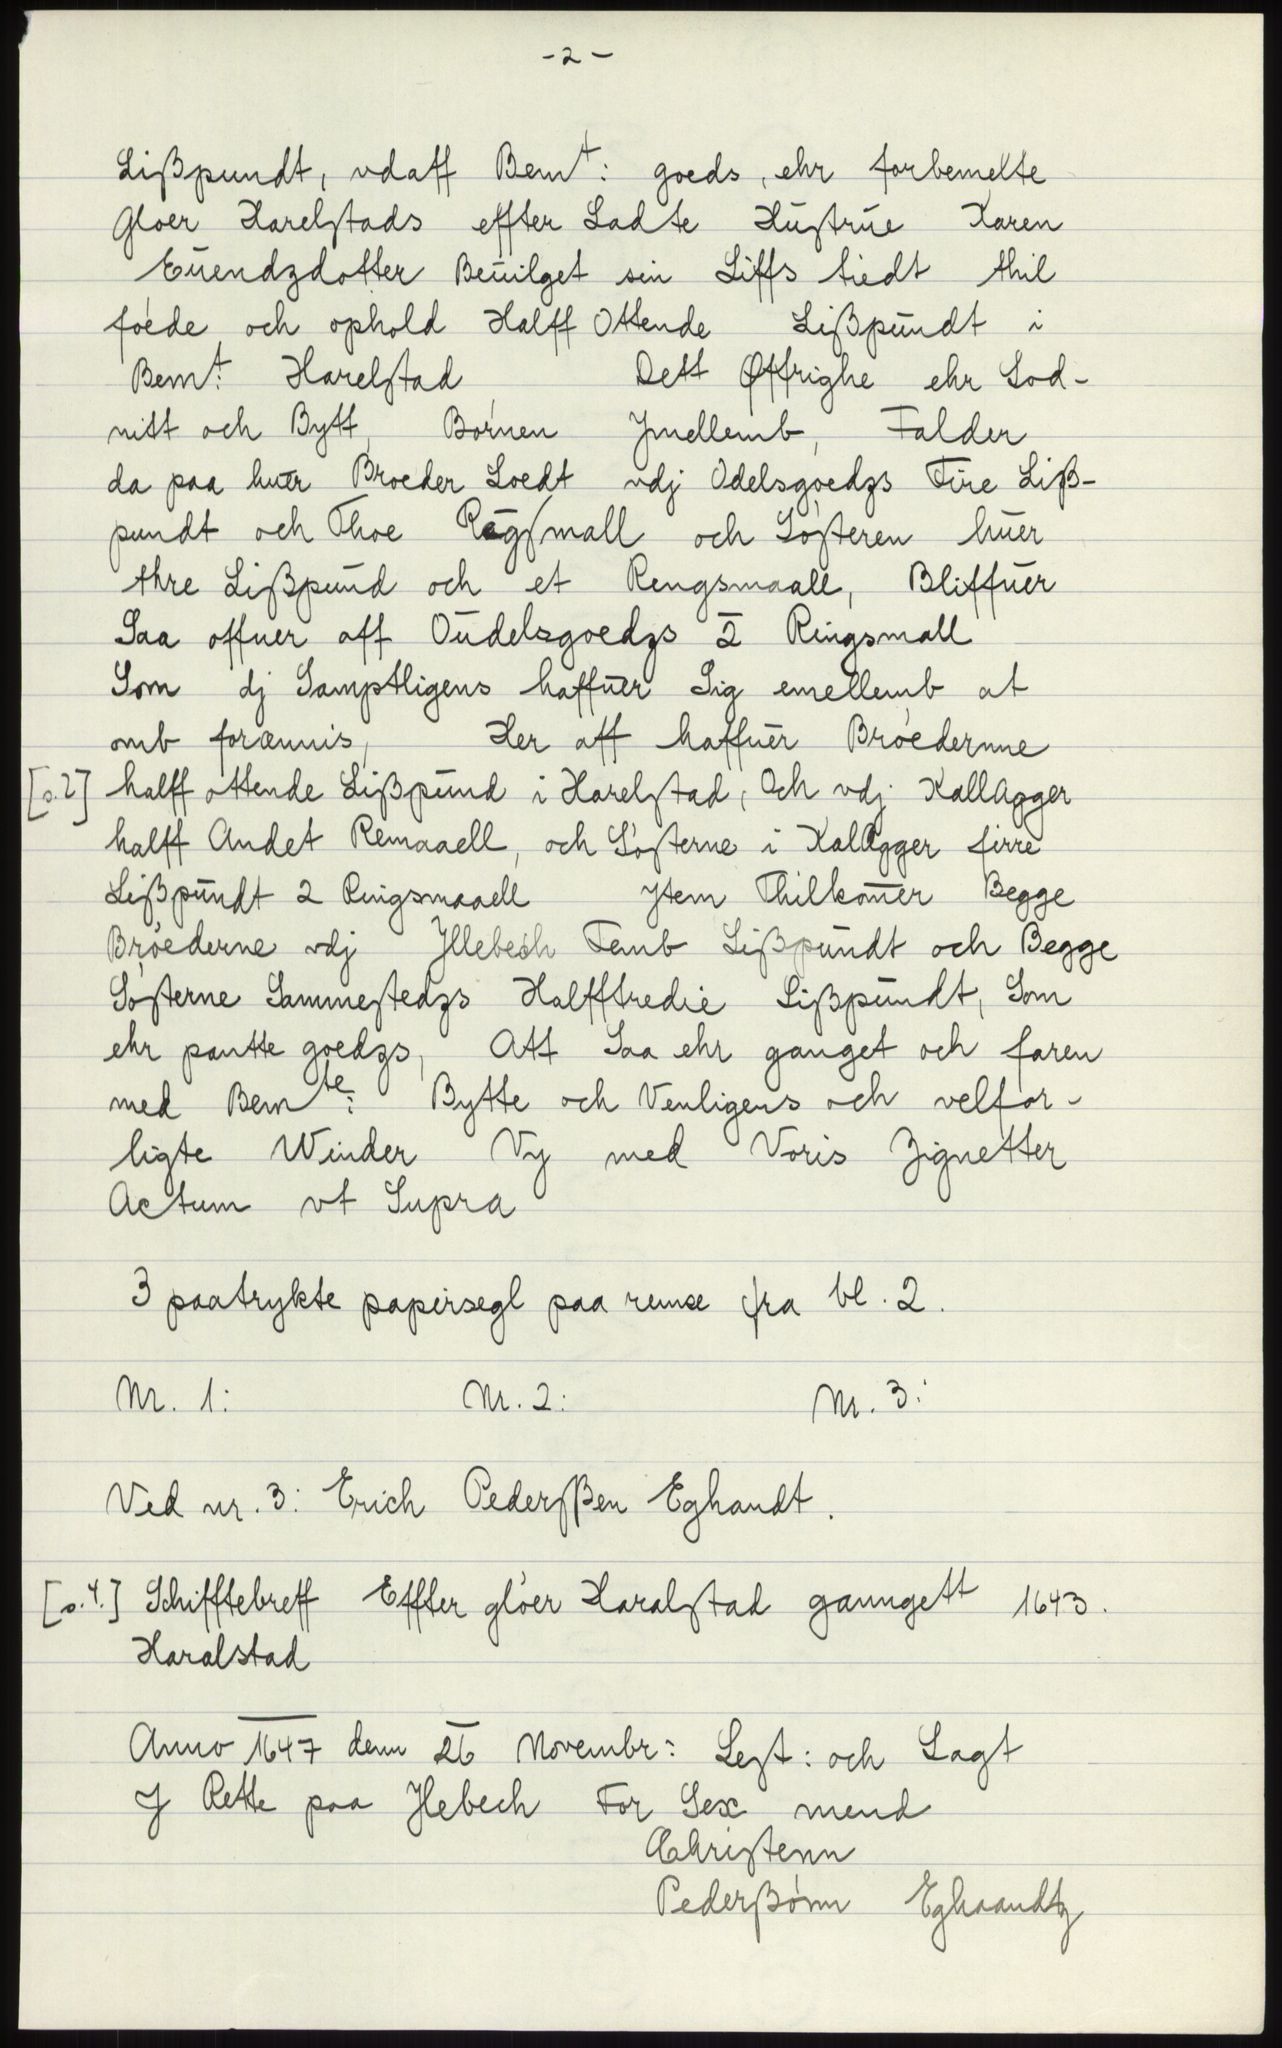 -2-
Lißpundt, vdaff Bem^t: goeds, ehr forbemelte
Gloer Harelstads effter Ladte Hustrue Karen
Euendzdotter Beuilget sin Liffs tiedt thil
föede och ophold Halff Ottende Lißpundt i
Bem^t: Harelstad, Dett Øffrighe ehr Lod-
nitt och Bytt, Börnen Jmellemb, Falder
da paa huer Broeder Loedt vdj Odelsgoedzs Fire Liß-
pundt och Thoe Rögsmall och Sösteren huer
thre Lißpund och et Rengsmaall, Bliffuer
Saa offuer aff Oudelsgoedzs 2 Ringsmall
Som dj Samptligens haffuer Sig emellemb at
omb forænnis, Her aff haffuer Bröedernne
[s.2] halff ottende Lißpund i Harelstad, Och vdj Kallagger
halff Andet Remaaell, och Sösterne i Kalagger firre
Lißpundt 2 Ringsmaaell Jtem Thilkomer Begge
Bröederne vdj Jllebech Femb Lißpundt och Begge
Sösterne Sammestedzs Halfftredie Lißpundt, Som
ehr pantte goedzs, Att Saa ehr ganget och faren
med Bem^te: Bytte och Venligens och velfor-
ligte Winder Vy med Voris Zignetter
Actum vt Supra
3 paatrykte papirsegl paa remse fra bl. 2.
Nr. 1: Nr. 2: Nr. 3:
Ved nr. 3: Erich Pederßen Eghandt.
[s.4.] Schifftebreff Effter glöer Haralstad ganngett 1643.
Haralstad
Anno 1647 denn 26 Novembr: Lest: och Lagt
J Rette paa Jlebech For Sex mend
Christenn
Pederßönn Eghaandtz